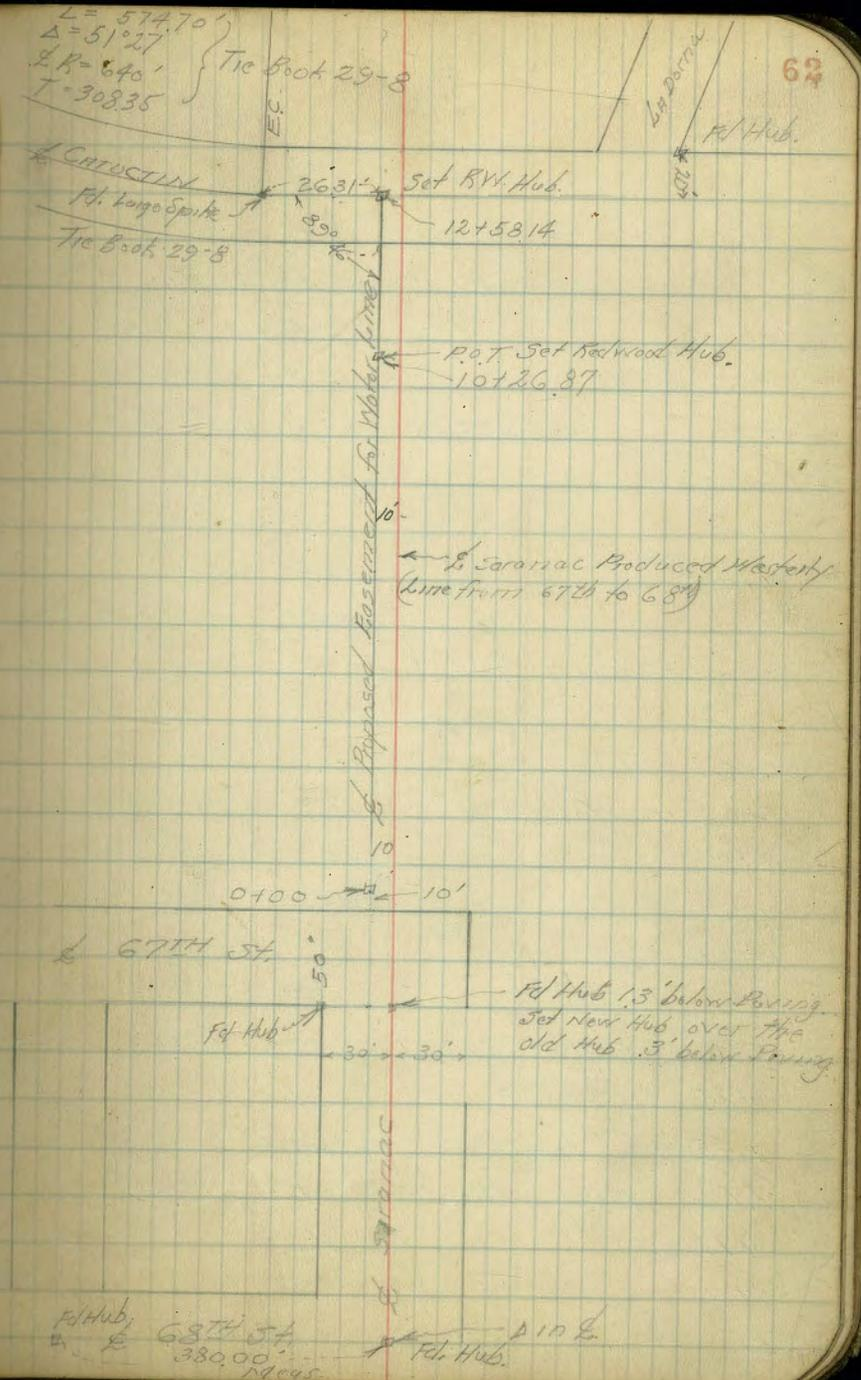 L = 574.70'
Δ = 51°27'
℄ R = 640'
T = 308.35
Tie Book 29-8
62
E.C.
La Dorna
Fd Hub.
℄ CATOCTIN
26.31'
Set RW. Hub.
Fd. Large Spike
12+58.14
89°
Tie Book 29-8
P.O.T. Set Redwood Hub.
10+26.87
℄ Proposed Easement for Water Line
10'
℄ Saranac Produced Westerly
(Line from 67th to 68th)
10
0+00
10'
℄ 67TH St.
50'
Fd Hub 1.3' below Paving.
Set New Hub over the
old Hub .3' below Paving
Fd Hub
30' 30'
℄ Saranac
Fd Hub.
℄ 68TH St.
Δ in ℄
380.00'
Meas.
Fd. Hub.